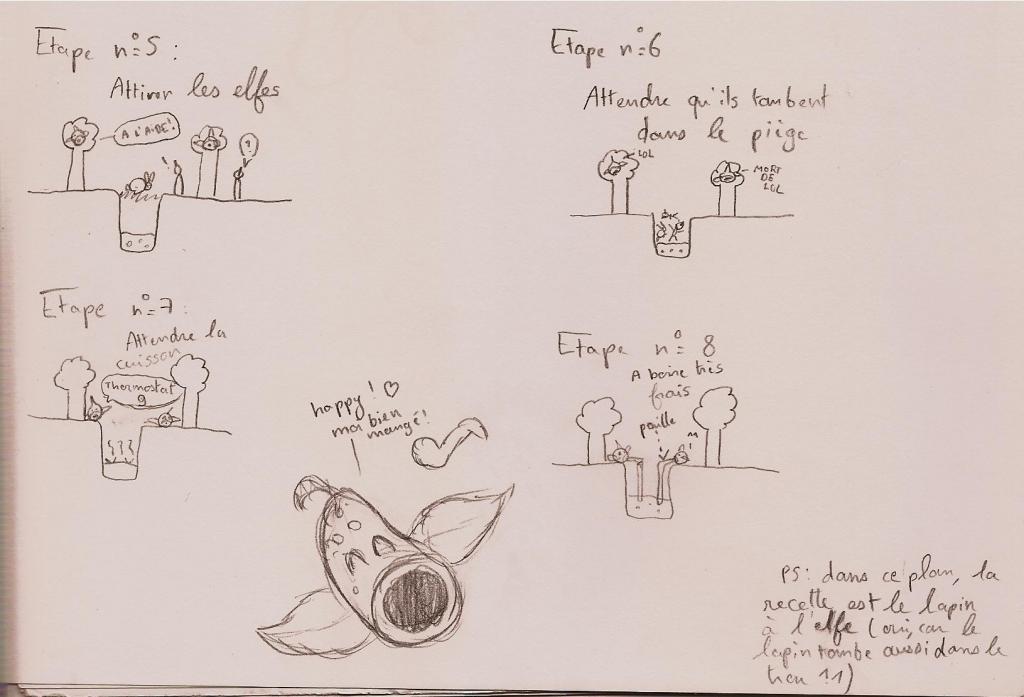 Etape n°5 :
Attirer les elfes
A L'AIDE!
!
?
Etape n°6
Attendre qu'ils tombent
dans le piège
LOL
MORT
DE
LOL
Etape n°7 :
Attendre la
cuisson
Thermostat
9
Etape n° 8
A boire très
frais
paille
^^
!
happy! ♡
moi bien
mangé!
PS: dans ce plan, la
recette est le lapin
à l'elfe (oui, car le
lapin tombe aussi dans le
trou 11)